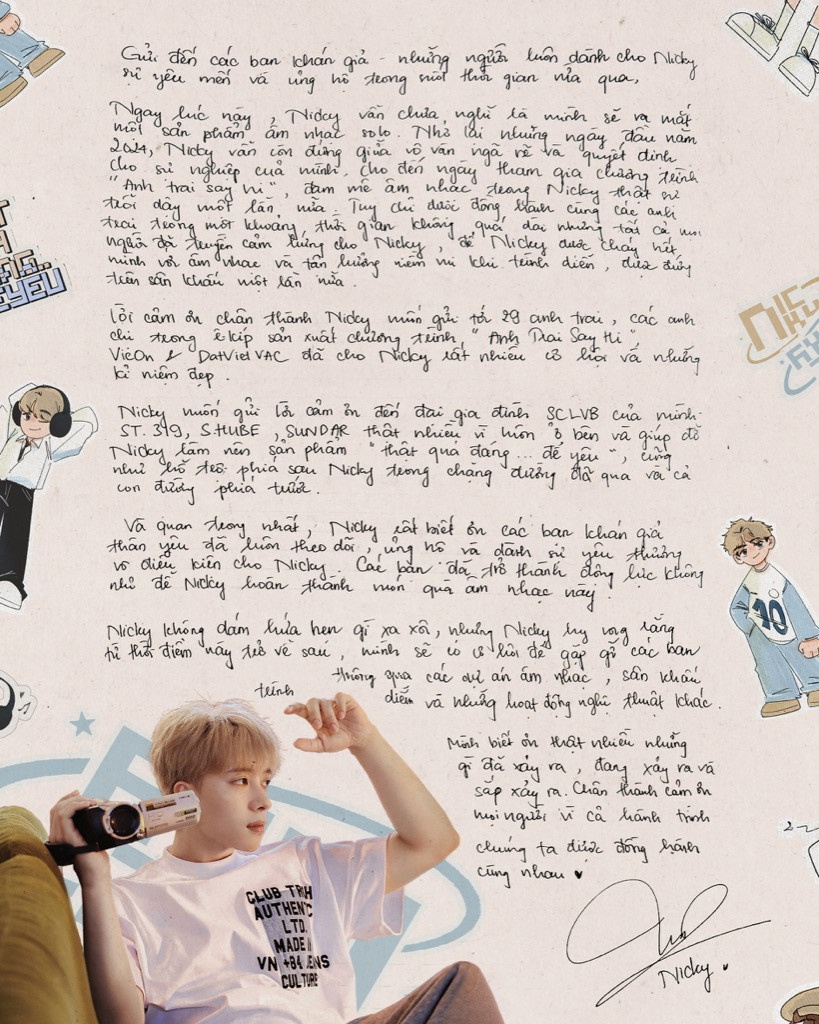 Gửi đến các bạn khán giả - những người luôn dành cho Nicky
sự yêu mến và ủng hộ trong suốt thời gian vừa qua,
Ngay lúc này, Nicky vẫn chưa nghĩ là mình sẽ ra mắt
một sản phẩm âm nhạc solo. Nhớ lại những ngày đầu năm
2024, Nicky vẫn còn đứng giữa vô vàn ngã rẽ và quyết định
cho sự nghiệp của mình. Cho đến ngày tham gia chương trình
"Anh trai say hi", đam mê âm nhạc trong Nicky thật sự
trỗi dậy một lần nữa. Tuy chỉ được đồng hành cùng các anh
trai trong một khoảng thời gian không quá dài nhưng tất cả mọi
người đã truyền cảm hứng cho Nicky, để Nicky được cháy hết
mình với âm nhạc và tận hưởng niềm vui khi trình diễn, được đứng
trên sân khấu một lần nữa.
Lời cảm ơn chân thành Nicky muốn gửi tới 29 anh trai, các anh
chị trong ê-kíp sản xuất chương trình "Anh Trai Say Hi"
VieOn & DatVietVAC đã cho Nicky rất nhiều cơ hội và những
kỉ niệm đẹp.
Nicky muốn gửi lời cảm ơn đến đại gia đình SCLVB của mình
ST.319, S.HUBE, SUNDAR thật nhiều vì luôn ở bên và giúp đỡ
Nicky làm nên sản phẩm "thật quá đáng... để yêu", cũng
như hỗ trợ phía sau Nicky trong chặng đường đã qua và cả
con đường phía trước.
Và quan trọng nhất, Nicky rất biết ơn các bạn khán giả
thân yêu đã luôn theo dõi, ủng hộ và dành sự yêu thương
vô điều kiện cho Nicky. Các bạn đã trở thành động lực không
nhỏ để Nicky hoàn thành món quà âm nhạc này.
Nicky không dám hứa hẹn gì xa xôi, nhưng Nicky hy vọng rằng
từ thời điểm này trở về sau, mình sẽ có cơ hội để gặp gỡ các bạn
thông qua các dự án âm nhạc, sân khấu
trình diễn và những hoạt động nghệ thuật khác.
Mình biết ơn thật nhiều những
gì đã xảy ra, đang xảy ra và
sắp xảy ra. Chân thành cảm ơn
mọi người vì cả hành trình
chúng ta được đồng hành
cùng nhau ♥
Nicky ♥
CLUB TRNH
AUTHENTC
LTD.
MADE IN
VN +84 JEANS
CULTURE
10